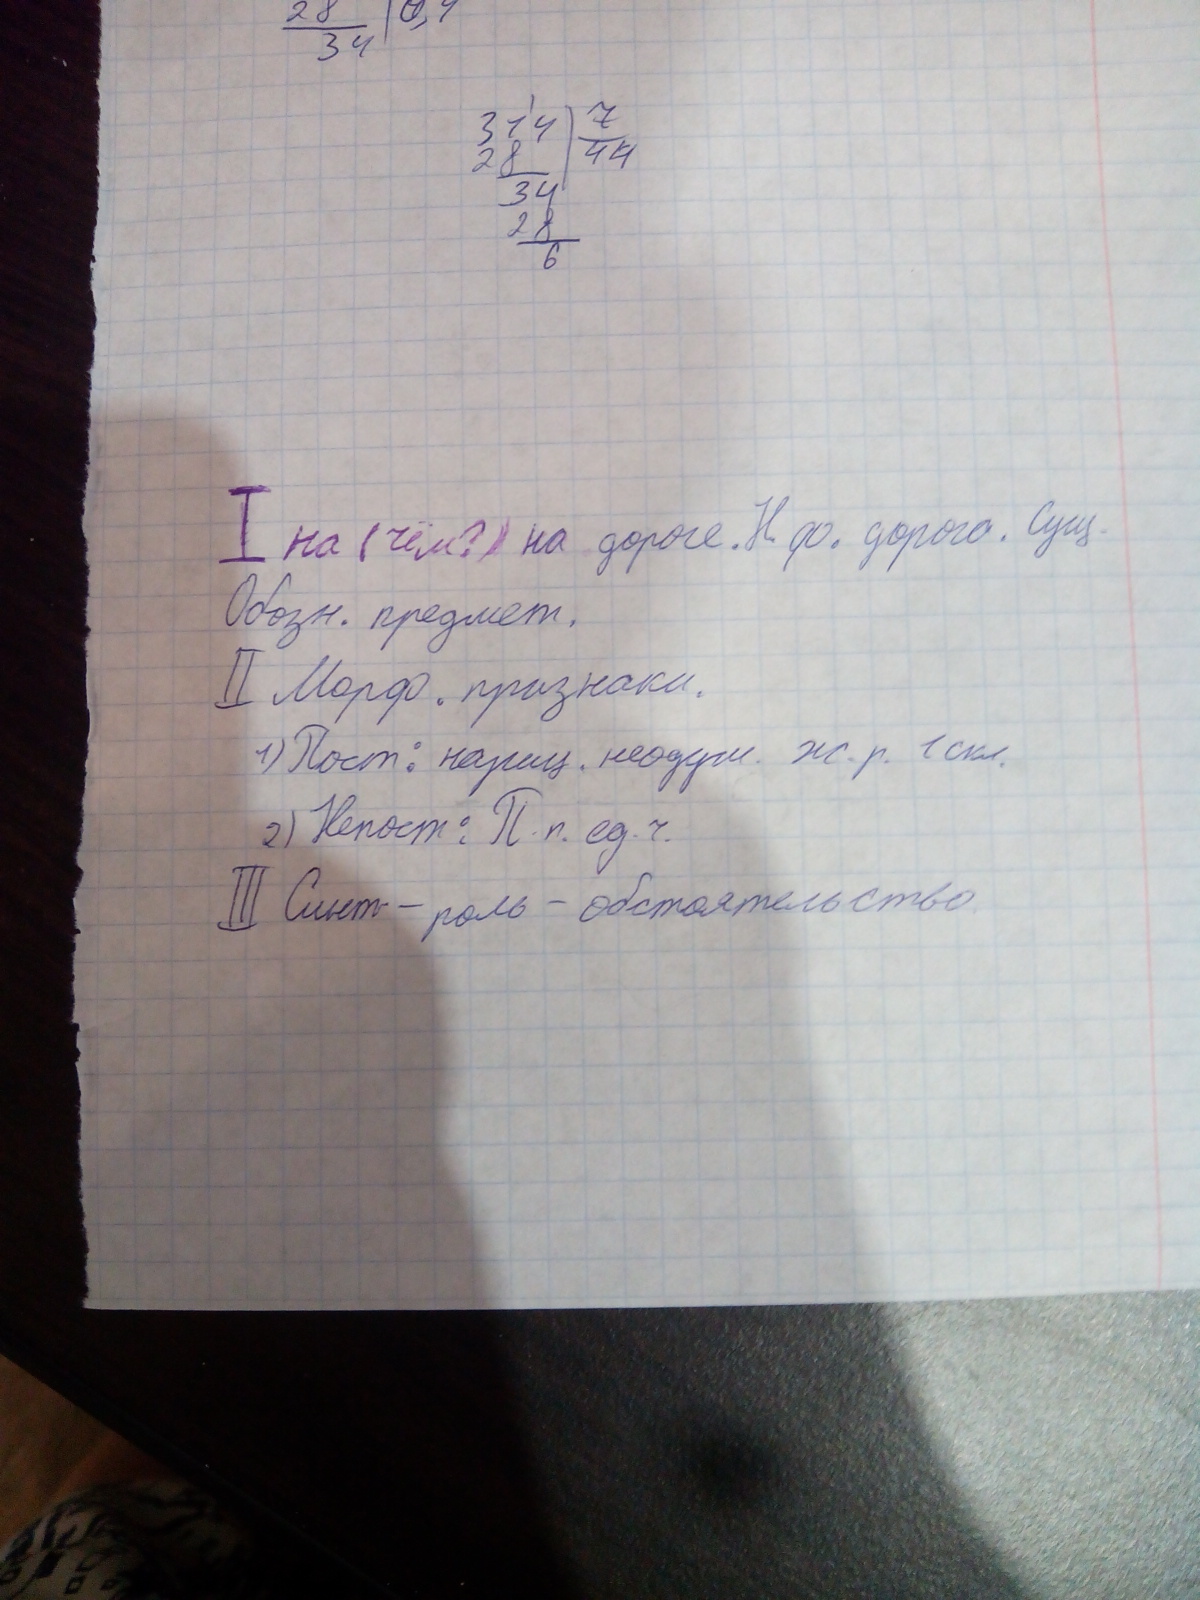 28
34
0,4
314 7
28 44
34
28
6
I на (чём?) на дороге. Н.ф. дорога. Сущ.
Обозн. предмет.
II Морф. признаки.
1) Пост: нариц. неодуш. ж.р. 1 скл.
2) Непост: П.п. ед.ч.
III Синт – роль – обстоятельство.